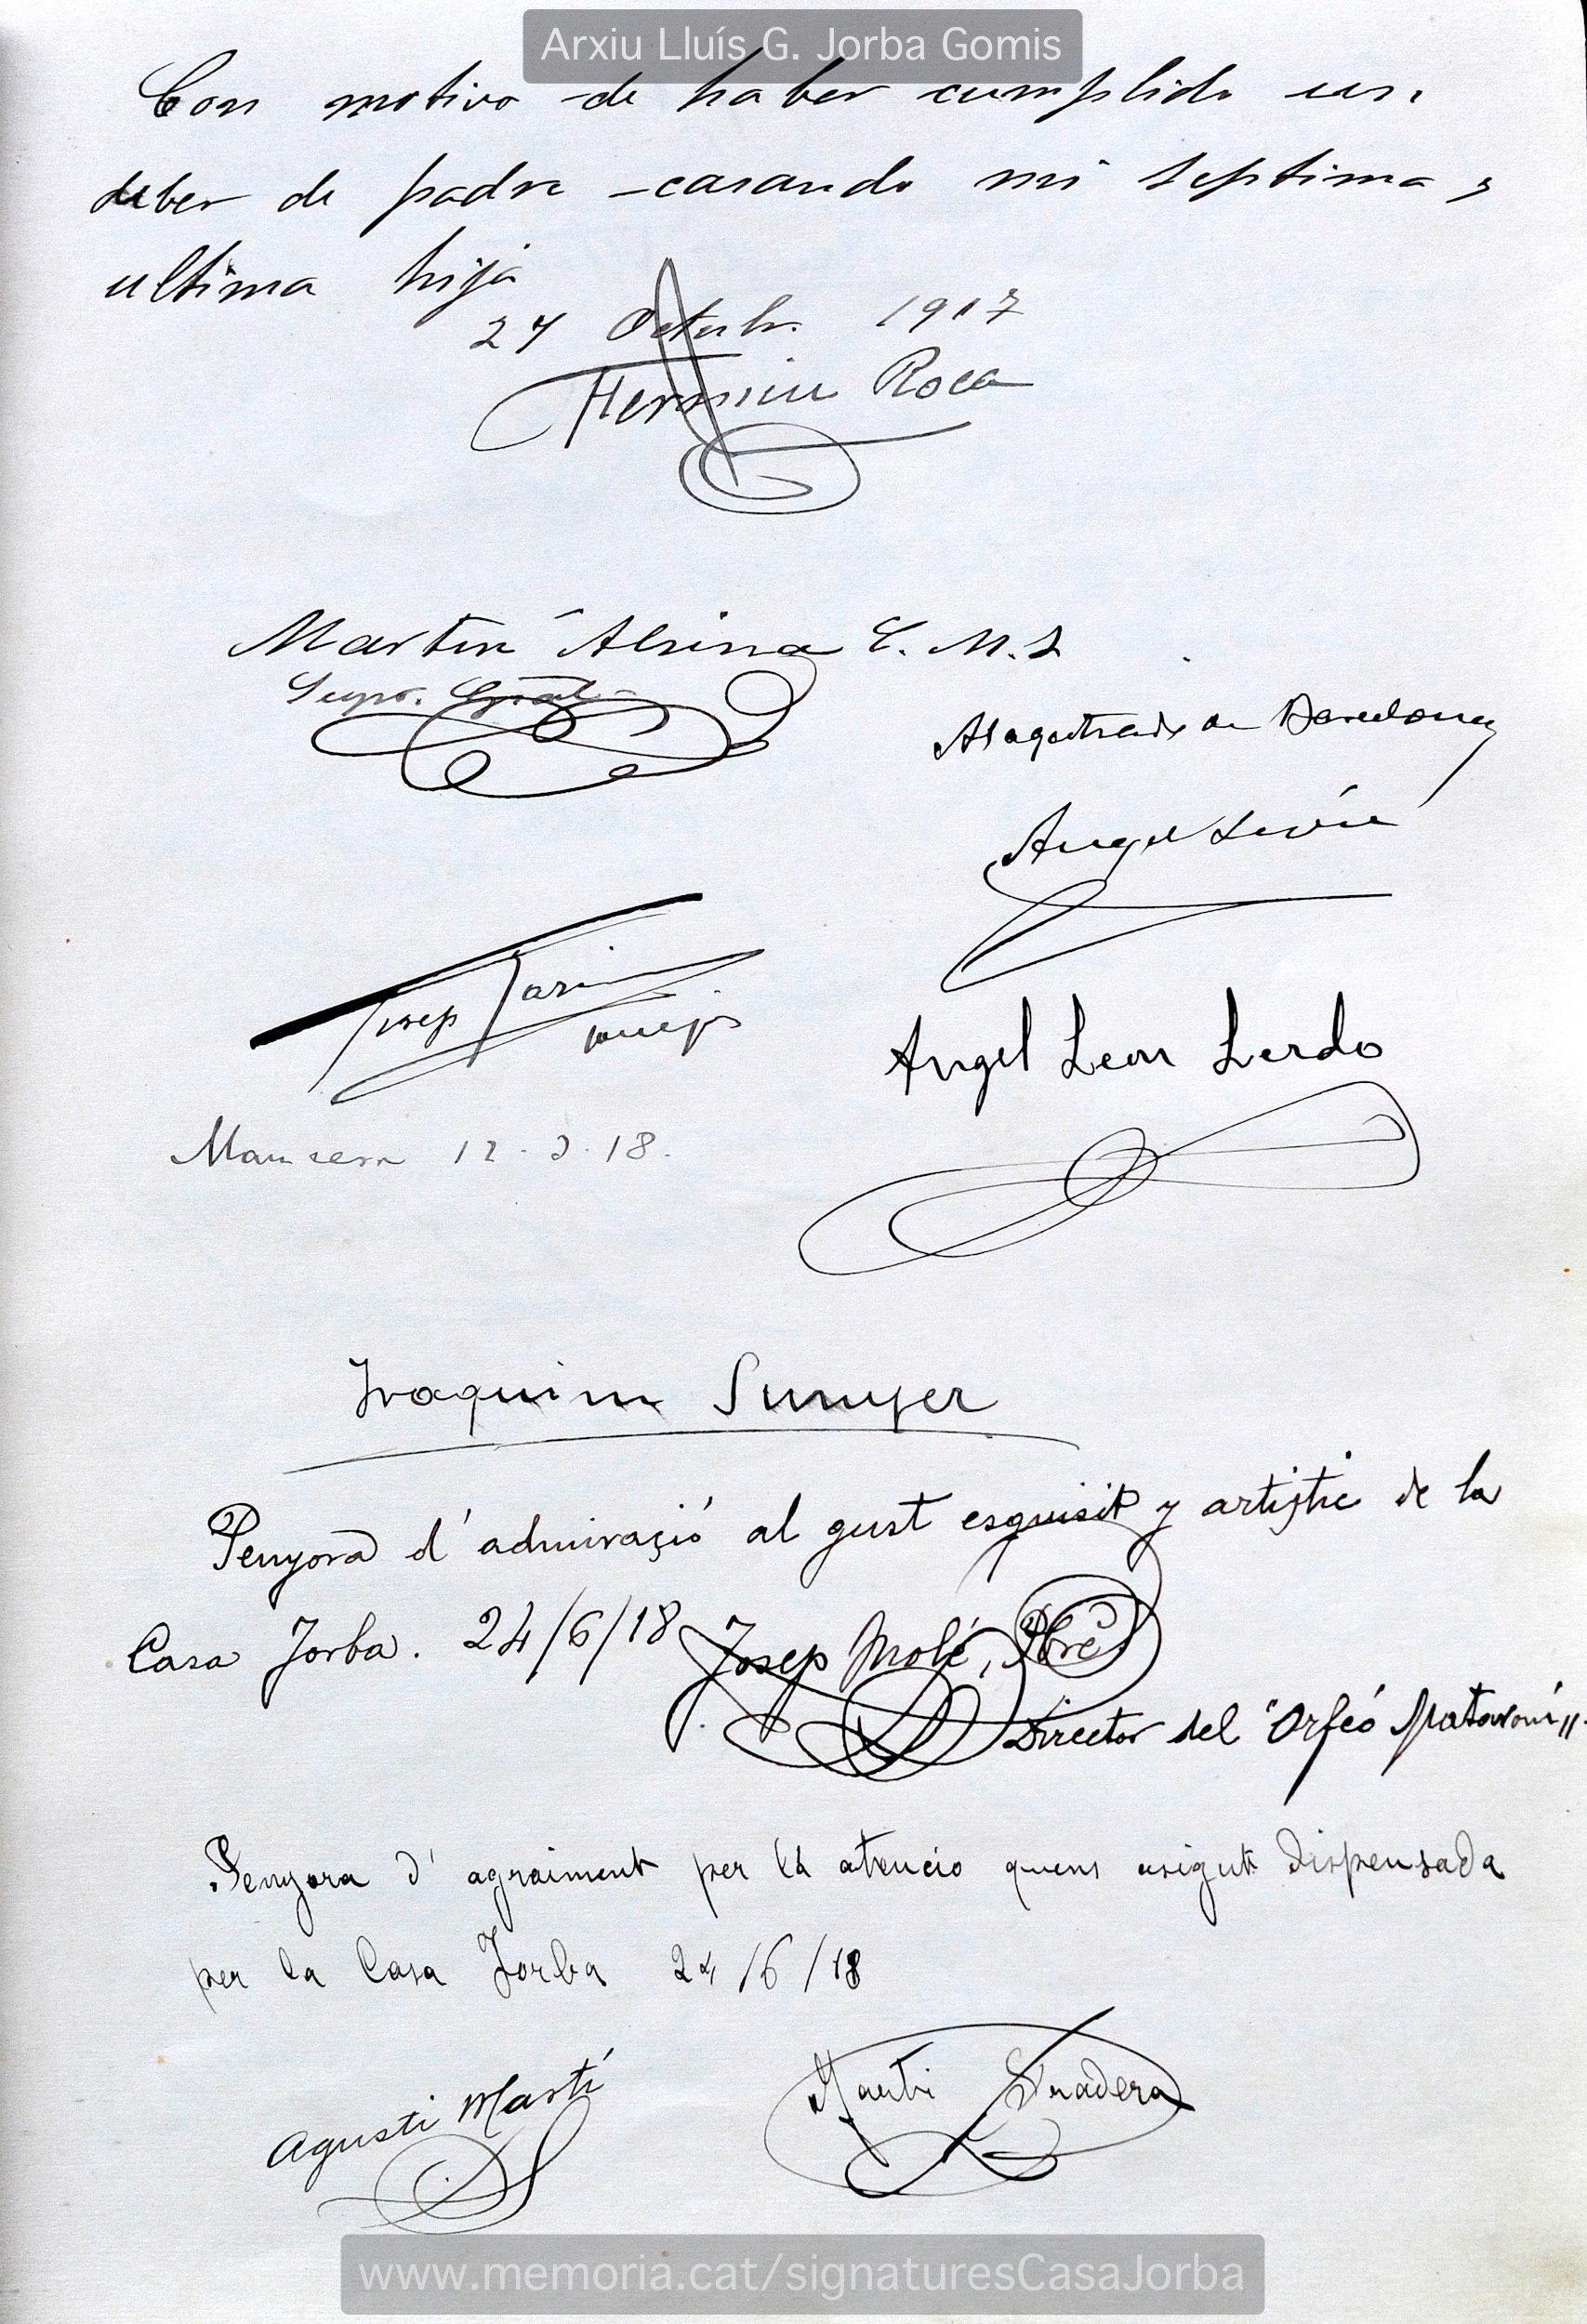 Arxiu Lluís G. Jorba Gomis
Con motivo de haber cumplido un
deber de padre casando mi septima y
ultima hija
27 Octubr. 1917
Herminio Roca
Martin Alsina C. M. S
Supr. Gral
Magistrado de Barcelona
Angel León
Josep Tarin
Angel Leon Lerdo
Manresa 12.3.18.
Joaquim Sunyer
Penyora d'admiració al gust esquisit y artístic de la
Casa Jorba. 24/6/18 Josep Molé, Pbre
Director del "Orfeó Mataroní".
Penyora d'agraiment per la atencio quens asigut dispensada
per la Casa Jorba 24/6/18
Agusti Martí
Marti Anadera
www.memoria.cat/signaturesCasaJorba